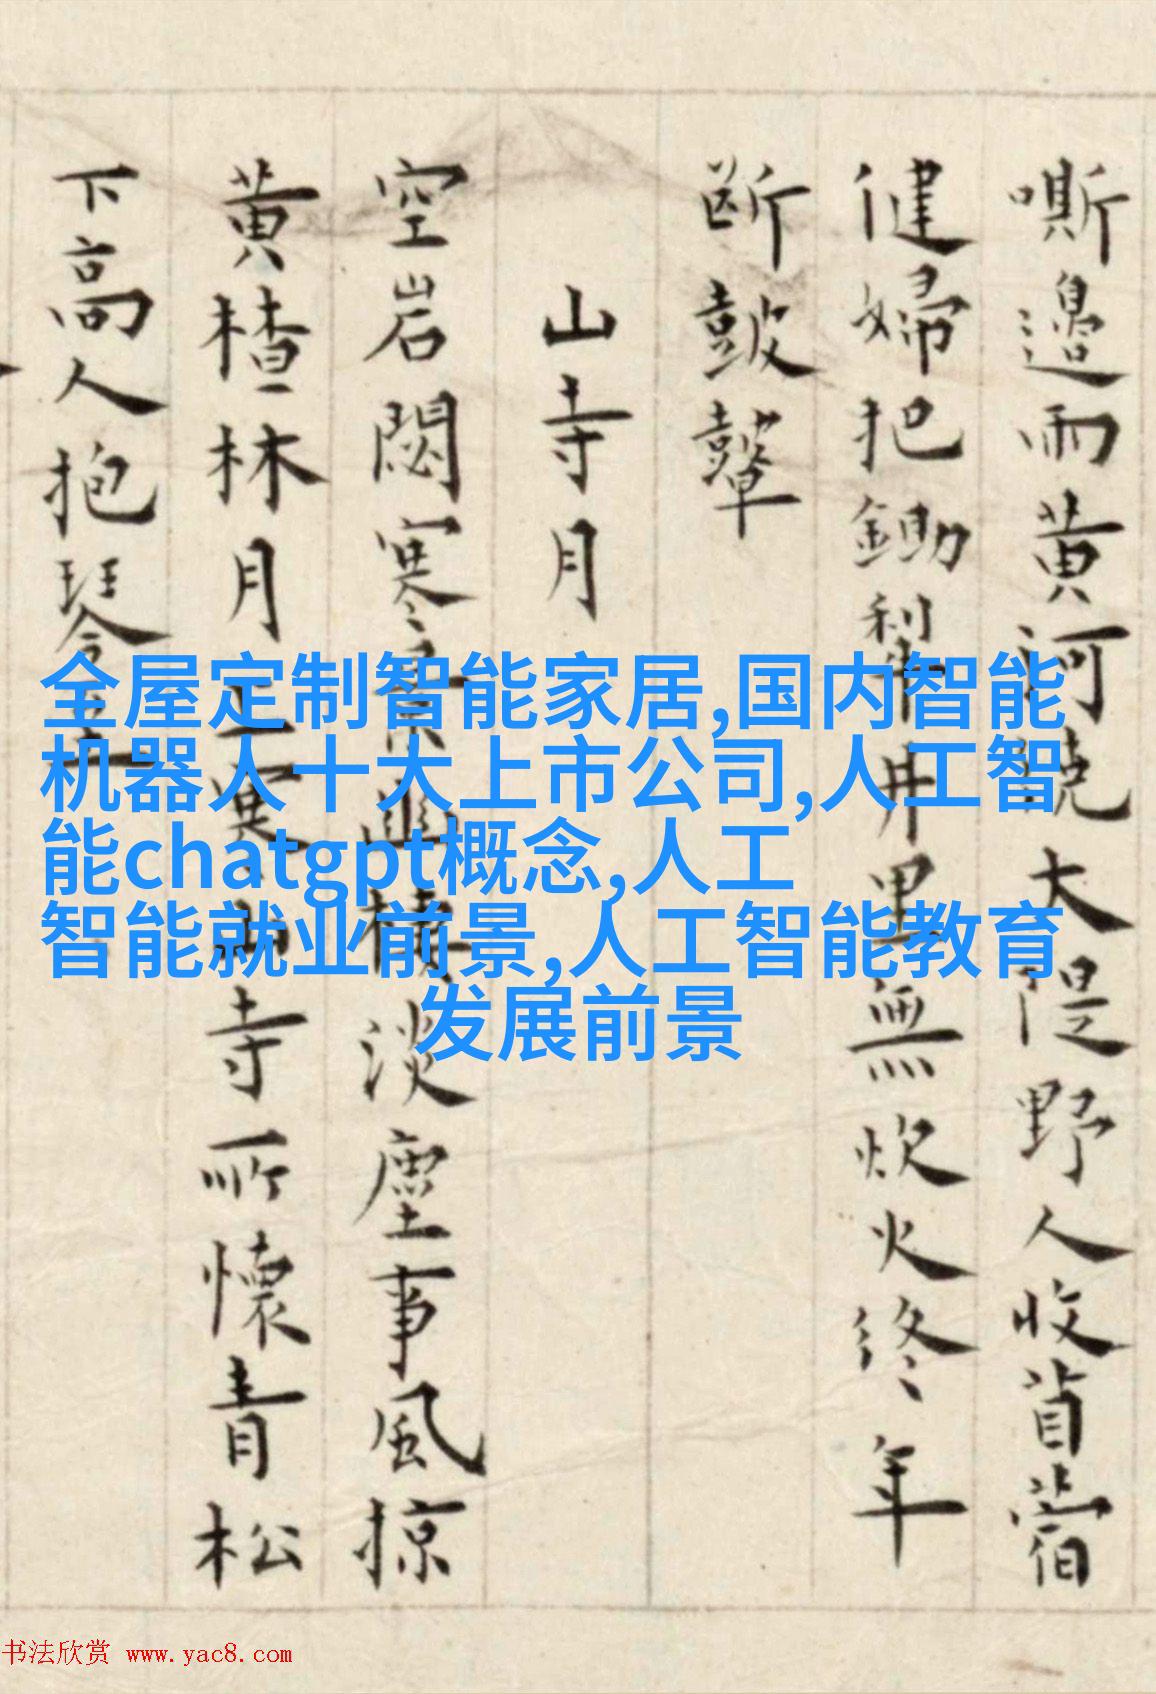 嘶邊雨黄河堯大隄野人收首蓿
健婦把鋤犁井里無炊火終年
斷鼓鼙
山寺月
空岩閟寒景幽棲淡塵事風掠
黄楂林月寒寺所懷青松
下高人抱琴
全屋定制智能家居,国内智能
机器人十大上市公司,人工智
能chatgpt概念,人工
智能就业前景,人工智能教育
发展前景
书法欣赏 www.yac8.com